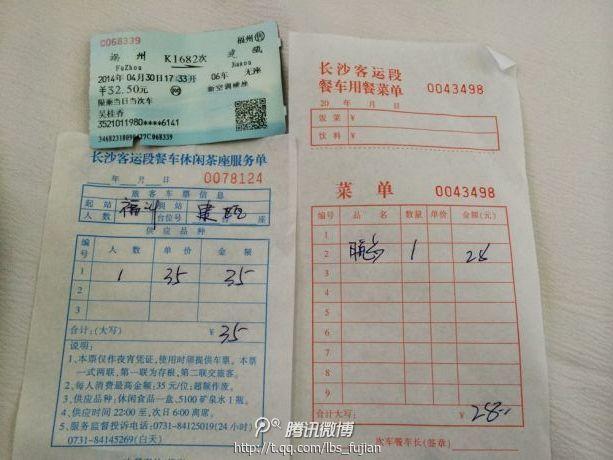 C068339
福州㊕
福州 K1682次 建瓯
FuZhou Jianou
2014年04月30日17:33开 06车 无座
¥32.50元 新空调硬座
限乘当日当次车
吴桂香
3521011980****6141
长沙客运段餐车休闲茶座服务单
年 月 日 0078124
旅客车票信息
起站 福州 到站 建瓯
人数 台位号 座
供应品种
编号 人数 单价 金额
1 1 35 35
2
3
合计:(大写) ¥35
说明:
1、本票仅作夜宵凭证,使用时须提供车票。本票
一式两联,第一联为存根,第二联交旅客。
2、每人消费最高金额:35元/位;超额作废。
3、供应品种:休闲食品一盒、5100矿泉水1瓶。
4、供应时间22:00至、次日6:00离席。
5、服务监督投诉电话:0731-84125019(24小时)
0731-84145269(白天)
长沙客运段
餐车用餐菜单 0043498
20 年 月 日
饭菜 ¥
饮料 ¥
菜单 0043498
编号 品名 数量 单价 金额(元)
1
2 1 28
3
4
5
6
7
8
9
合计大写: ¥28
次车餐车长(签章)
腾讯微博
http://t.qq.com/lbs_fujian